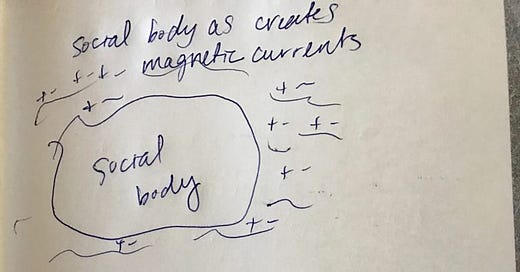 social body as creates
magnetic currents
+- +-+-
+ -
+ -
+- +-
+ -
+-
+-
social
body